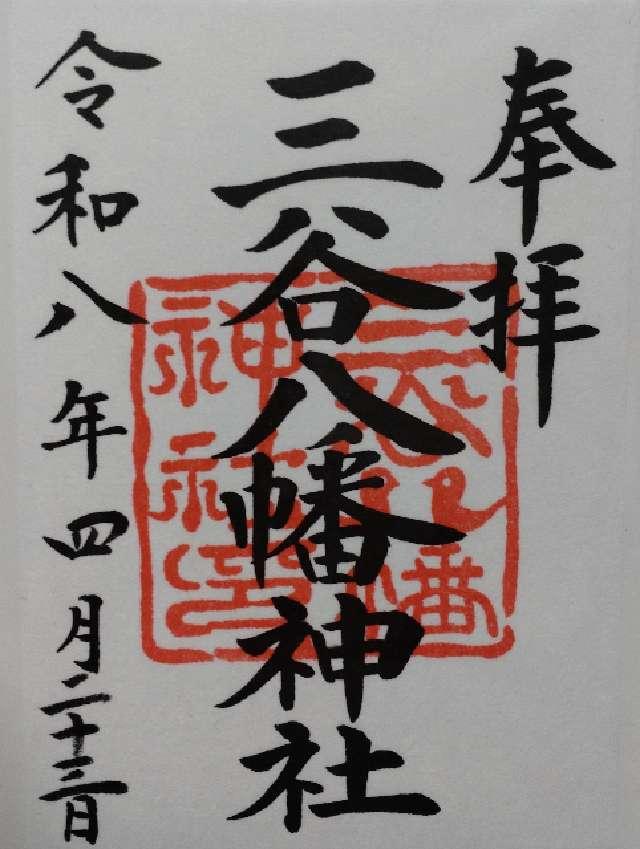 奉拝
三谷八幡神社
令和八年四月二十三日
三谷八幡神社印